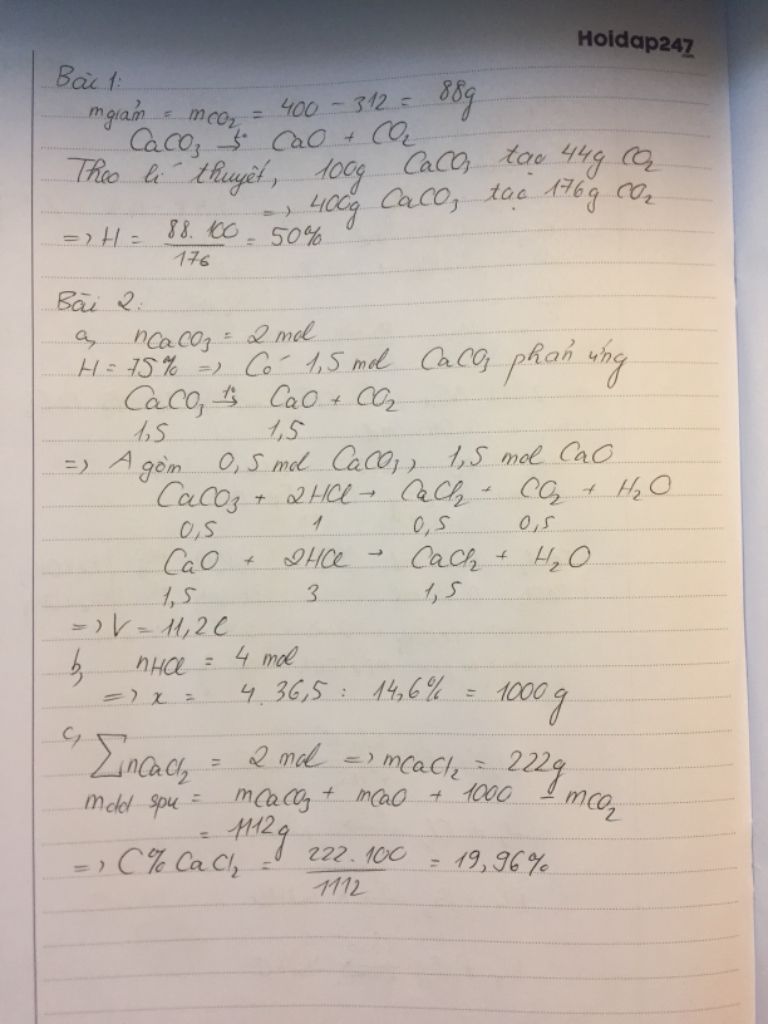 Hoidap247
Bài 1:
mgiảm = mCO₂ = 400 - 312 = 88g
CaCO₃ -t°-> CaO + CO₂
Theo lí thuyết, 100g CaCO₃ tạo 44g CO₂
=> 400g CaCO₃ tạo 176g CO₂
=> H = 88.100/176 = 50%
Bài 2:
a, nCaCO₃ = 2 mol
H = 75% => Có 1,5 mol CaCO₃ phản ứng
CaCO₃ -t°-> CaO + CO₂
1,5 1,5
=> A gồm 0,5 mol CaCO₃, 1,5 mol CaO
CaCO₃ + 2HCl → CaCl₂ + CO₂ + H₂O
0,5 1 0,5 0,5
CaO + 2HCl → CaCl₂ + H₂O
1,5 3 1,5
=> V = 11,2l
b, nHCl = 4 mol
=> x = 4.36,5 : 14,6% = 1000g
c, ∑nCaCl₂ = 2 mol => mCaCl₂ = 222g
mdd spu = mCaCO₃ + mCaO + 1000 - mCO₂
= 1112g
=> C% CaCl₂ = 222.100/1112 = 19,96%